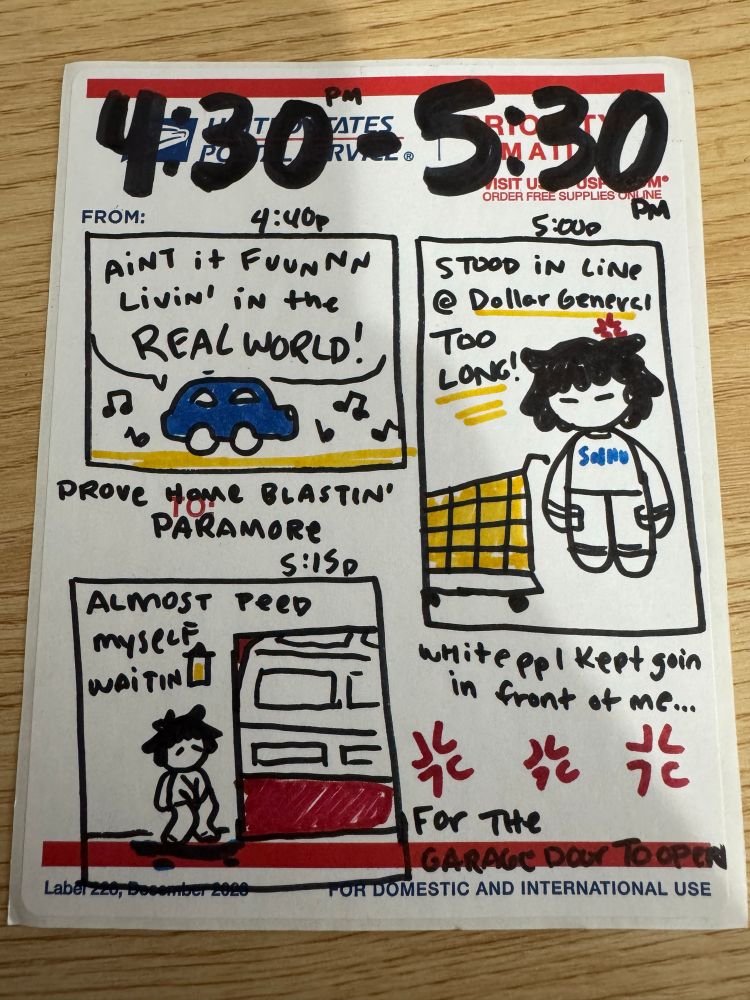 4:30 PM - 5:30 PM
UNITED STATES
POSTAL SERVICE®
PRIORITY
MAIL
VISIT US USPS.COM®
ORDER FREE SUPPLIES ONLINE
FROM:
4:40p
AiNT it FUUNNN
Livin' in the
REAL WORLD!
PROVE Home BLASTIN'
TO:
PARAMORE
5:00p
STOOD iN LiNe
@ Dollar General
TOO
LONG!
SoBHU
white ppl Kept goin
in front of me...
5:15p
ALMOST PEED
mySELF
WAITIN
FOR THE
GARAGE DOOR TO OPEN
Label 228, December 2023
FOR DOMESTIC AND INTERNATIONAL USE